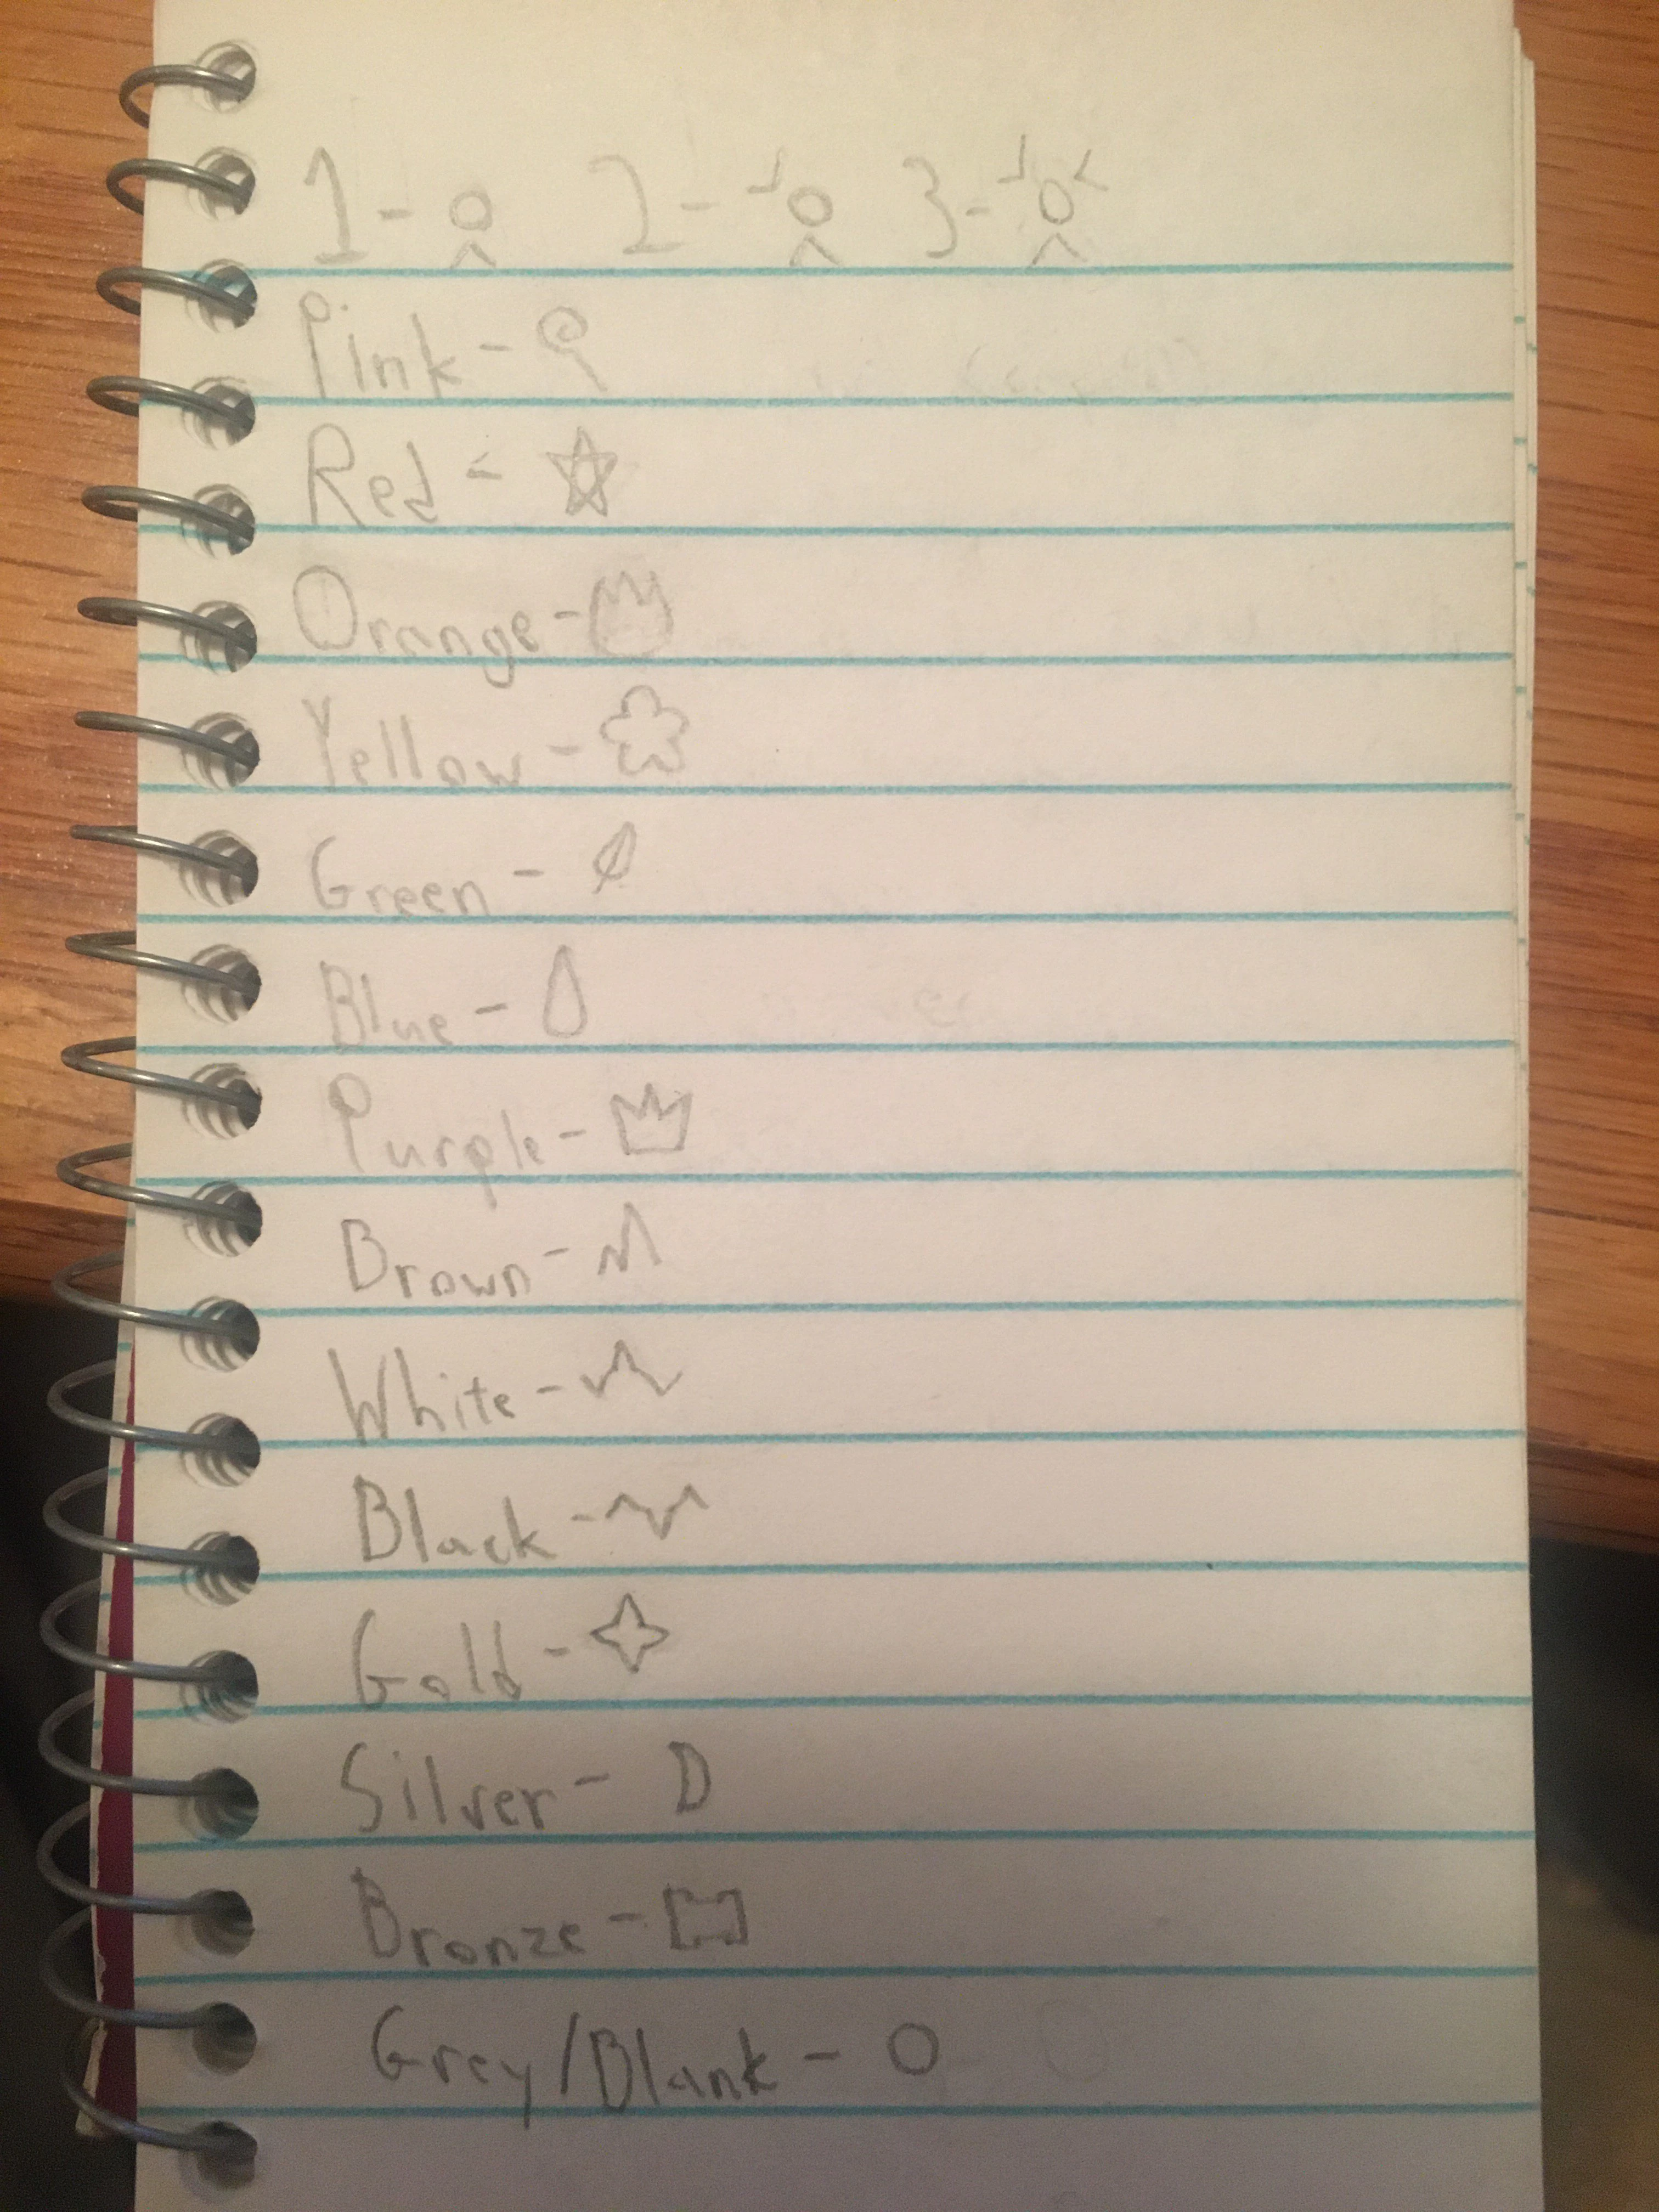 1 - 2 - 3 -
Pink -
Red -
Orange -
Yellow -
Green -
Blue -
Purple -
Brown -
White -
Black -
Gold -
Silver - D
Bronze -
Grey/Blank - O